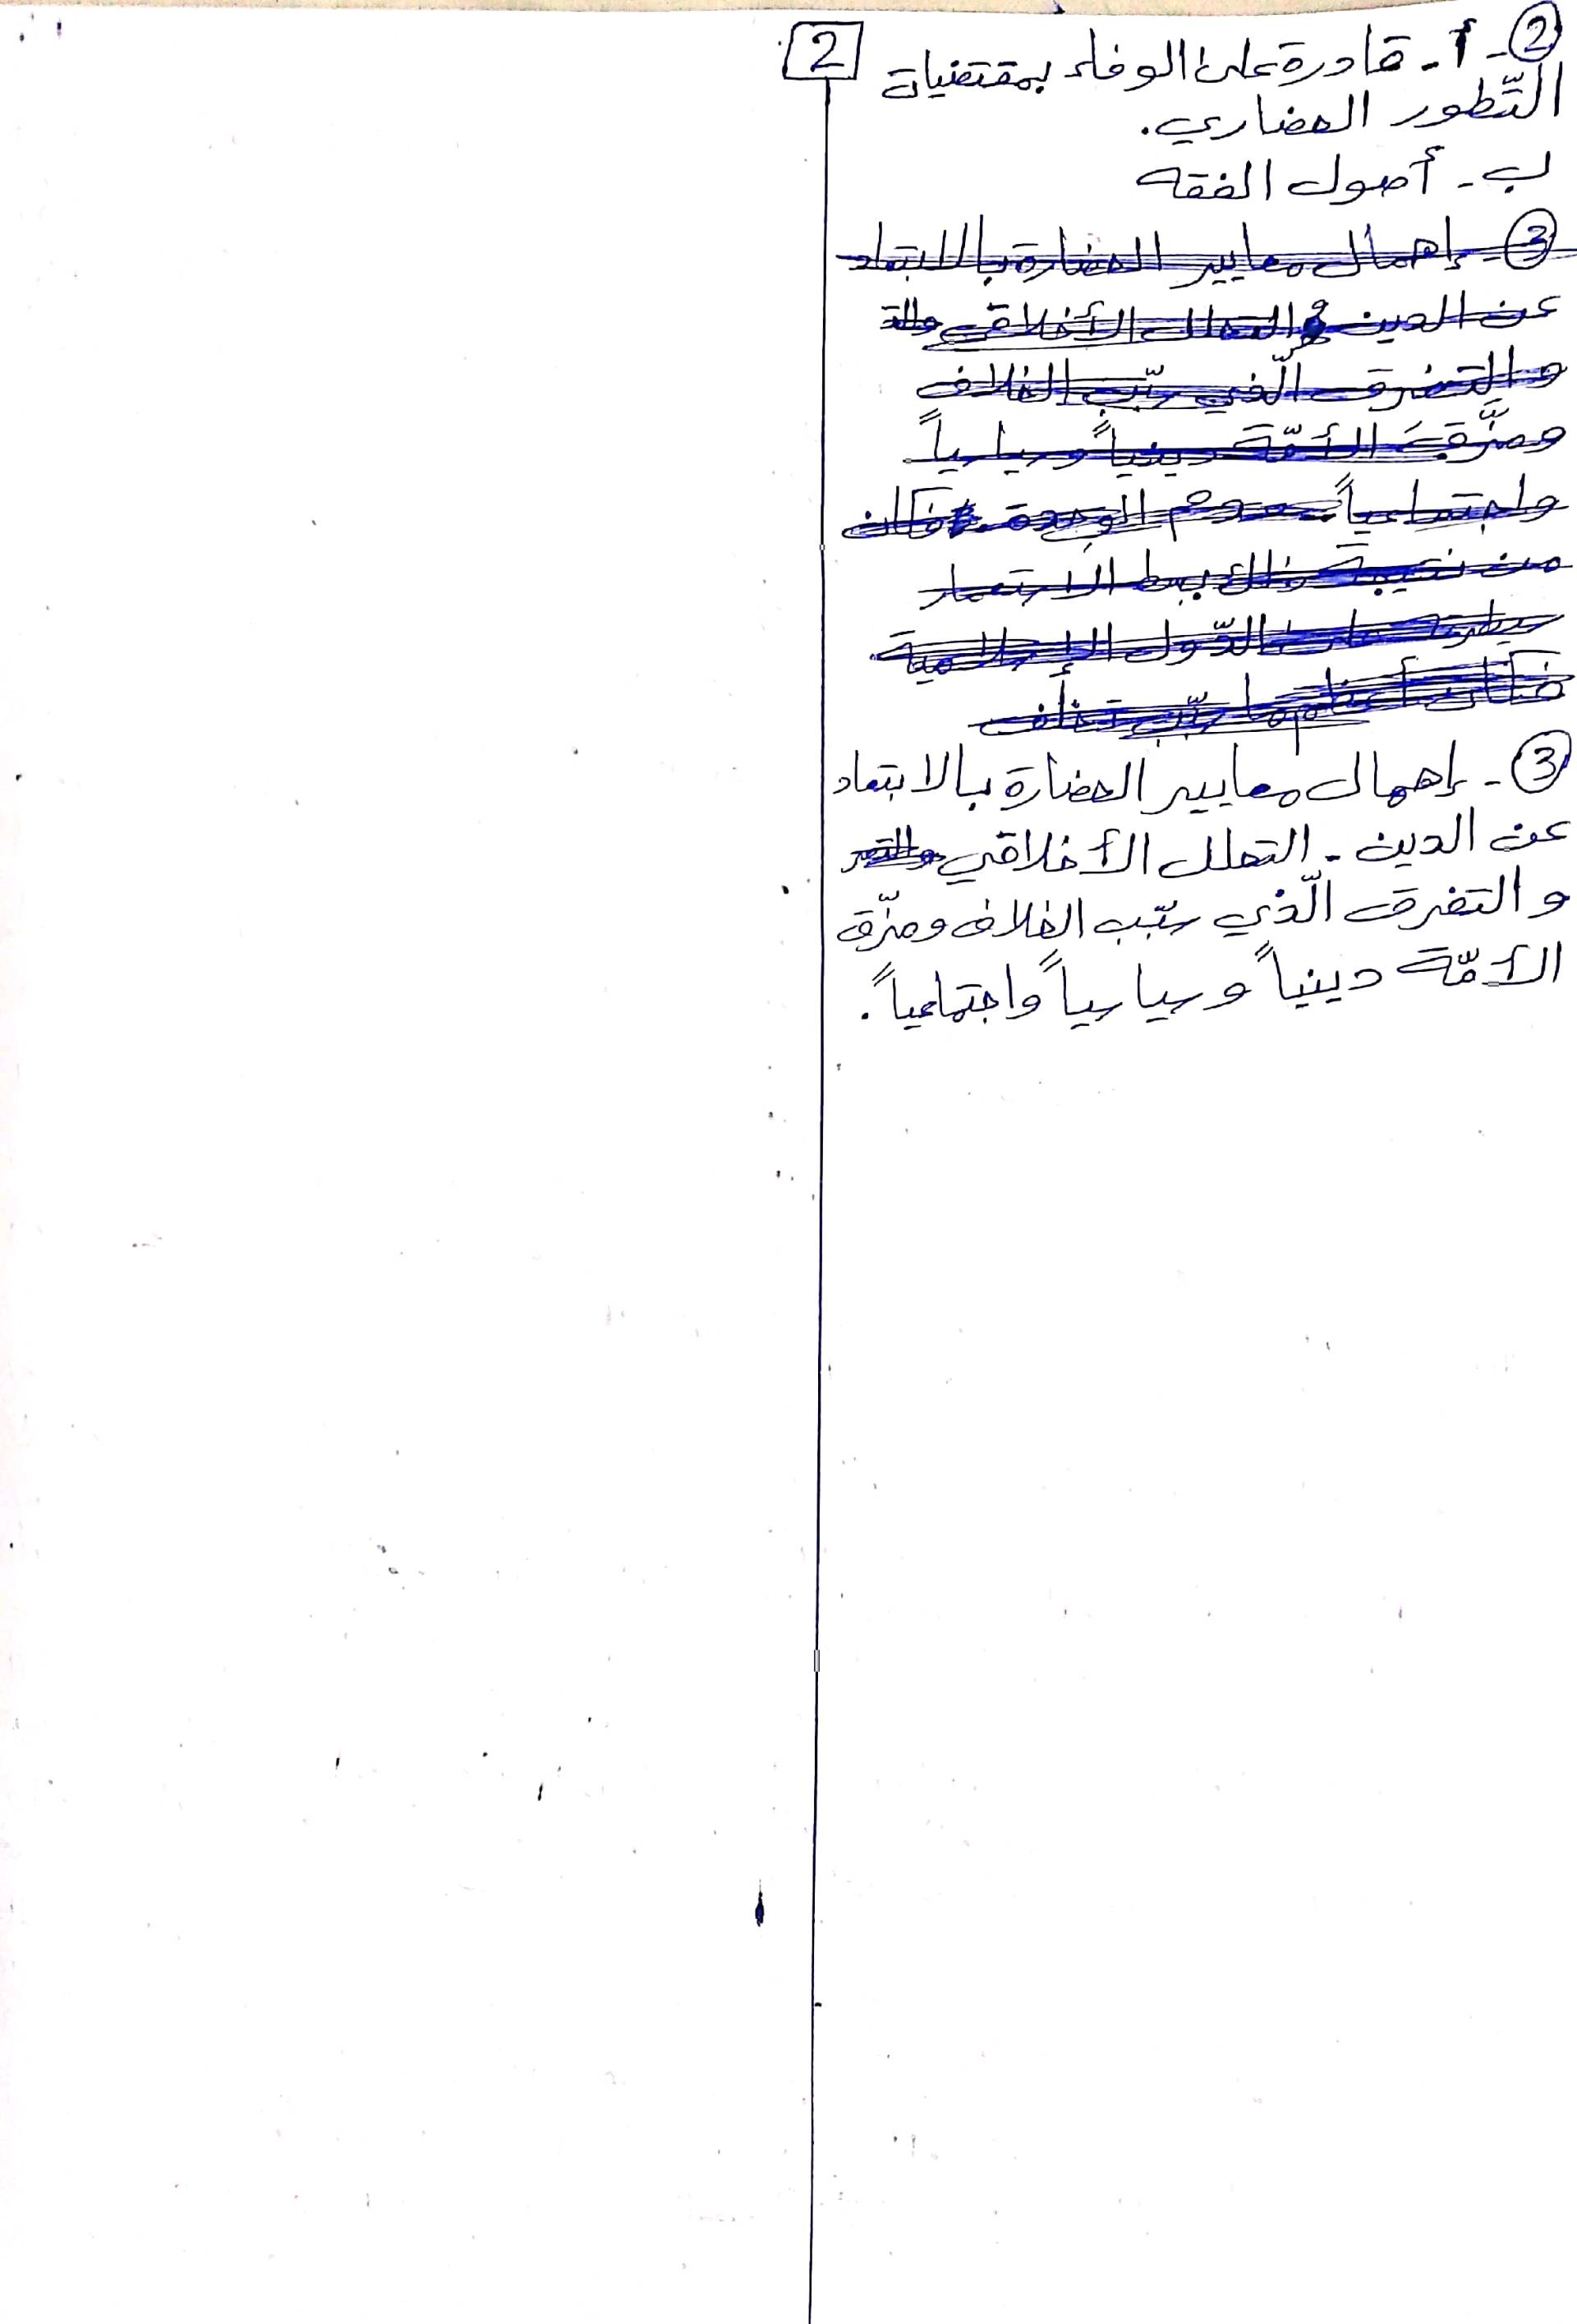 2
② - أ - قادرة على الوفاء بمقتضيات
التّطور الحضاري.
ب - أصول الفقه
③ - إهمال معايير الحضارة بالابتعاد
عن الدين و التحلل الأخلاقي
والتفرق الّذي سبّب الخلاف
ومزَّقَ الأمّة دينياً وسياسياً
واجتماعياً بعدم الوحدة. فكان
من نتيجة ذلك بسط الاستعمار
سيطرته على الدّول الإسلامية
③ - إهمال معايير الحضارة بالابتعاد
عن الدين - التحلل الأخلاقي
و التفرق الّذي سبّب الخلاف ومزّق
الأمّة دينياً وسياسياً واجتماعياً.